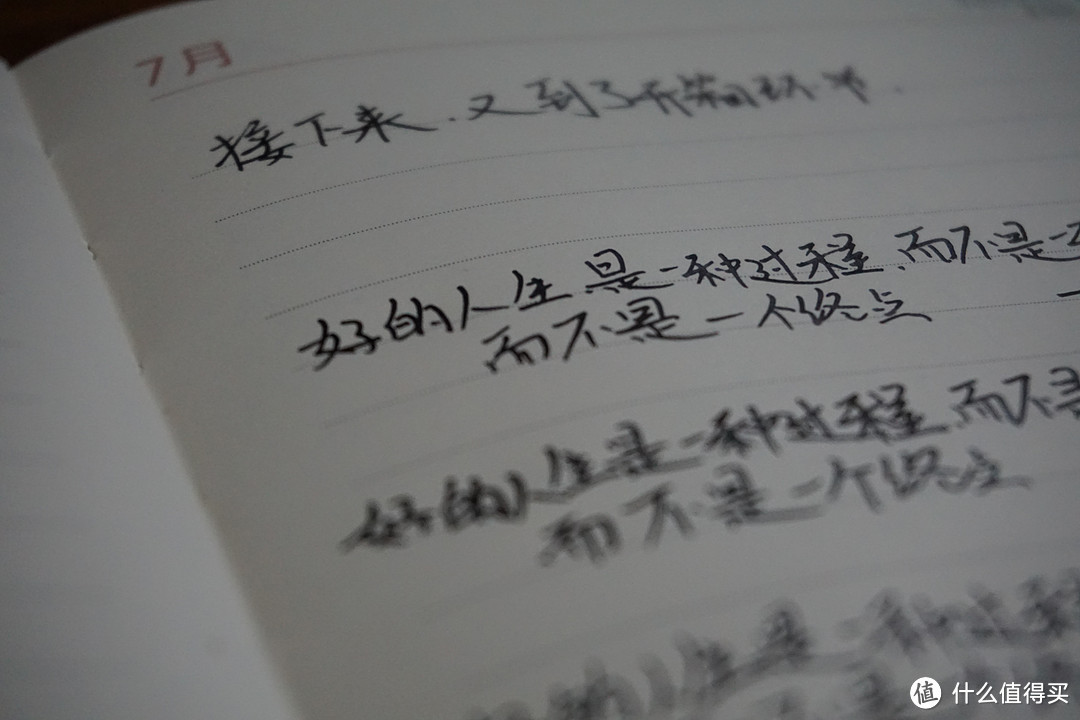 7月
接下来,又到了开柴的环节.
好的人生是一种过程,而不是一
而不是一个终点 一
好的人生是一种过程,而不是
而不是一个终点
的人生是一种过程
值 什么值得买